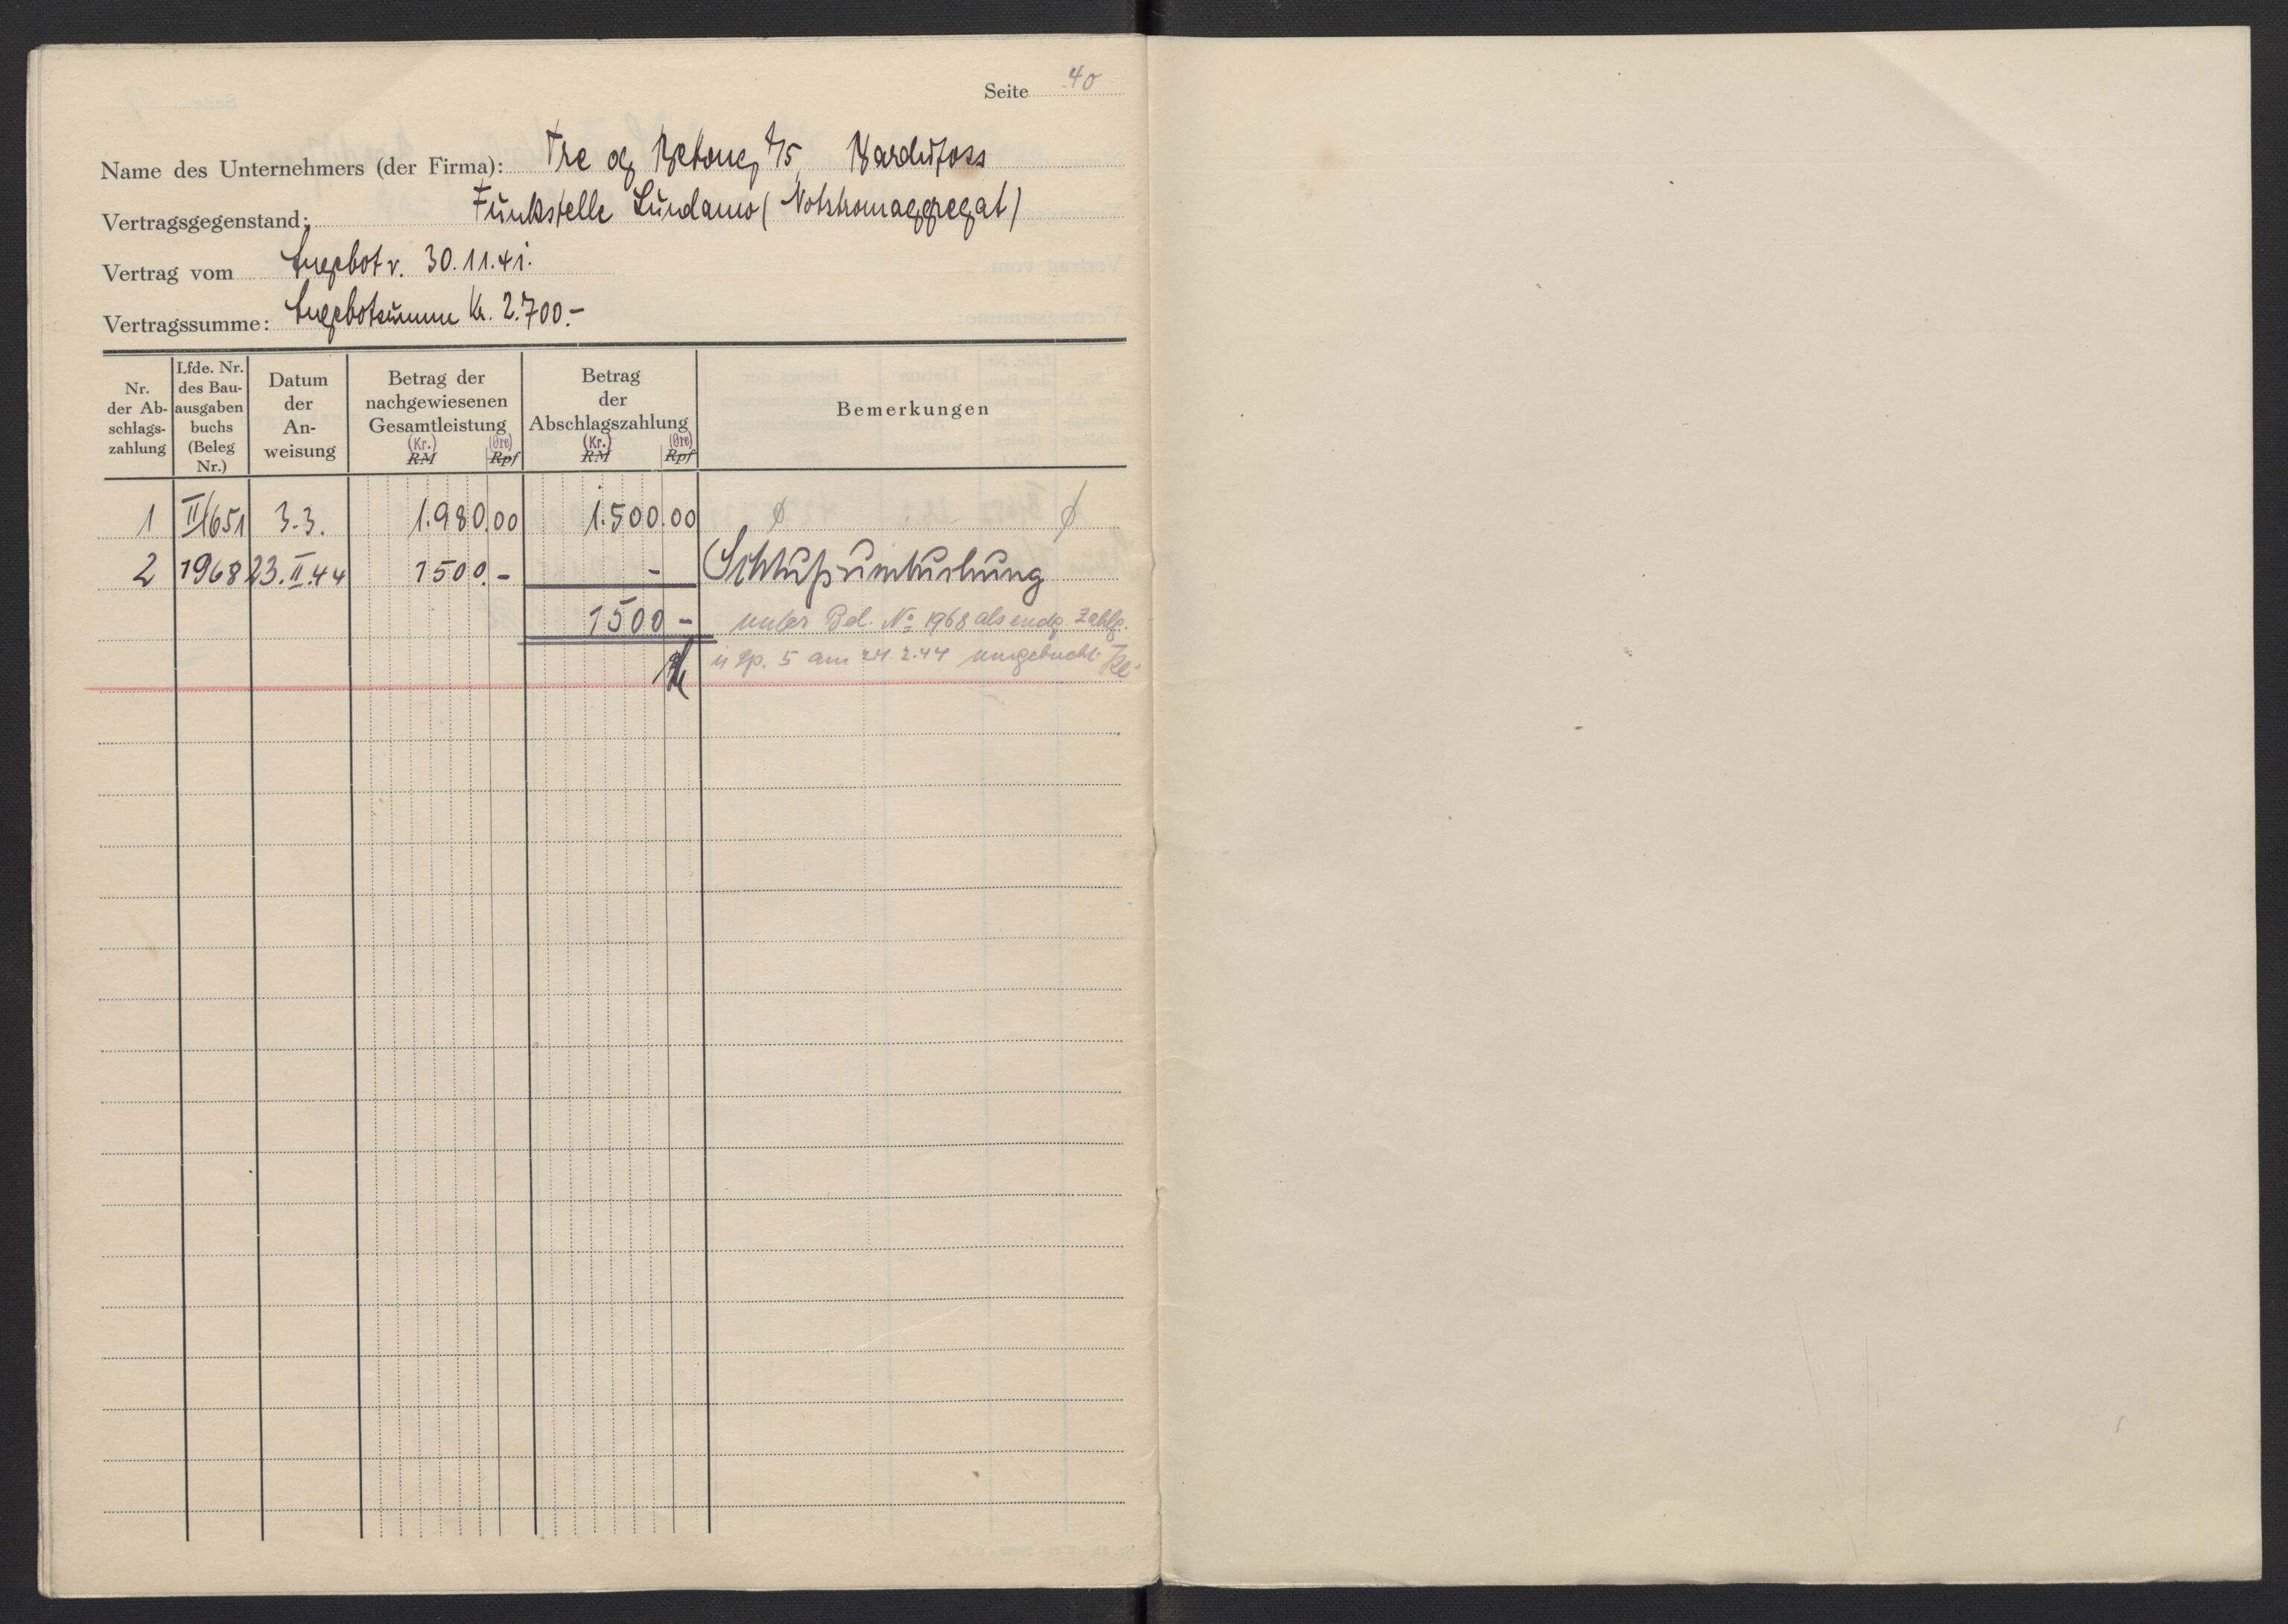 Seite 40
Name des Unternehmers (der Firma): Tre og Betong A/S, Bardufoss
Vertragsgegenstand: Funkstelle Lundamo (Notstromaggregat)
Vertrag vom Angebot v. 30.11.41.
Vertragssumme: Angebotsumme Kr. 2.700.-
Nr. der Ab- schlags- zahlung
Lfde. Nr. des Bau- ausgaben buchs (Beleg Nr.)
Datum der An- weisung
Betrag der nachgewiesenen Gesamtleistung (Kr.) RM (Øre) Rpf
Betrag der Abschlagszahlung (Kr.) RM (Øre) Rpf
Bemerkungen
1 II/651 3.3. 1.980.00 1.500.00 ø ø
2 1968 23.II.44 1500.- - Schlußumbuchung
1500 - unter Bel. No 1968 als endg. Zahlg.
in Sp. 5 am 24.2.44 umgebucht